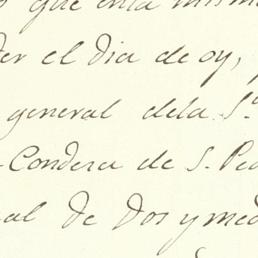 que en la mism
er el dia de oy,
general dela S.ª
Condesa de S. Ped
al de dos y med